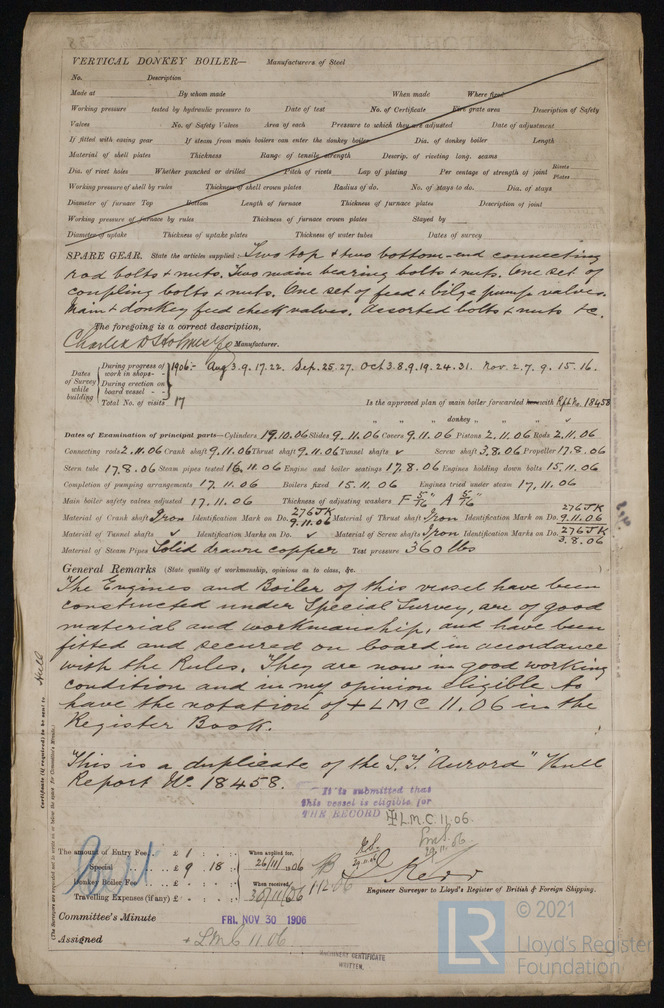 VERTICAL DONKEY BOILER— Manufacturers of Steel
No. Description
Made at By whom made When made Where fixed
Working pressure tested by hydraulic pressure to Date of test No. of Certificate Fire grate area Description of Safety
Valves No. of Safety Valves Area of each Pressure to which they are adjusted Date of adjustment
If fitted with easing gear If steam from main boilers can enter the donkey boiler Dia. of donkey boiler Length
Material of shell plates Thickness Range of tensile strength Descrip. of riveting long. seams
Dia. of rivet holes Whether punched or drilled Pitch of rivets Lap of plating Per centage of strength of joint Rivets Plates
Working pressure of shell by rules Thickness of shell crown plates Radius of do. No. of stays to do. Dia. of stays
Diameter of furnace Top Bottom Length of furnace Thickness of furnace plates Description of joint
Working pressure of furnace by rules Thickness of furnace crown plates Stayed by
Diameter of uptake Thickness of uptake plates Thickness of water tubes Dates of survey
SPARE GEAR. State the articles supplied:— Two top & two bottom-end connecting
rod bolts & nuts. Two main bearing bolts & nuts. One set of
coupling bolts & nuts. One set of feed & bilge pump valves.
Main & donkey feed check valves. Assorted bolts & nuts &c.
The foregoing is a correct description,
Charles D Holmes & Co Manufacturer.
Dates of Survey while building
During progress of work in shops - - 1906:- Aug 3.9.17.22. Sep. 25.27. Oct 3.8.9.19.24.31. Nov. 2.7.9.15.16.
During erection on board vessel - -
Total No. of visits 17 Is the approved plan of main boiler forwarded herewith Rpt No. 18458
" " " donkey " " "
Dates of Examination of principal parts—Cylinders 19.10.06 Slides 9.11.06 Covers 9.11.06 Pistons 2.11.06 Rods 2.11.06
Connecting rods 2.11.06 Crank shaft 9.11.06 Thrust shaft 9.11.06 Tunnel shafts ✓ Screw shaft 3.8.06 Propeller 17.8.06
Stern tube 17.8.06 Steam pipes tested 16.11.06 Engine and boiler seatings 17.8.06 Engines holding down bolts 15.11.06
Completion of pumping arrangements 17.11.06 Boilers fixed 15.11.06 Engines tried under steam 17.11.06
Main boiler safety valves adjusted 17.11.06 Thickness of adjusting washers F 5/16" A 5/16"
Material of Crank shaft Iron Identification Mark on Do. 276JK 9.11.06 Material of Thrust shaft Iron Identification Mark on Do. 276JK 9.11.06
Material of Tunnel shafts ✓ Identification Marks on Do. ✓ Material of Screw shafts Iron Identification Marks on Do. 276JK 3.8.06
Material of Steam Pipes Solid drawn copper Test pressure 360 lbs
General Remarks (State quality of workmanship, opinions as to class, &c.
The Engines and Boiler of this vessel have been
constructed under Special Survey, are of good
material and workmanship, and have been
fitted and secured on board in accordance
with the Rules. They are now in good working
condition and in my opinion eligible to
have the notation of + LMC 11.06 in the
Register Book.
This is a duplicate of the S.T. "Aurora" Hull
Report No. 18458.
It is submitted that
this vessel is eligible for
THE RECORD + L.M.C. 11.06.
29.11.06
The amount of Entry Fee .. £ 1 : : When applied for,
Special .. .. £ 9 : 18 : 26/11/1906
Donkey Boiler Fee .. .. £ : : When received,
Travelling Expenses (if any) £ : : 30/11/06
Engineer Surveyor to Lloyd's Register of British & Foreign Shipping.
Committee's Minute FRI. NOV 30 1906
Assigned + LMC 11.06
MACHINERY CERTIFICATE
WRITTEN.
Certificate (if required) to be sent to Hull
(The Surveyors are requested not to write on or below the space for Committee's Minute.)
© 2021
LR Lloyd's Register
Foundation